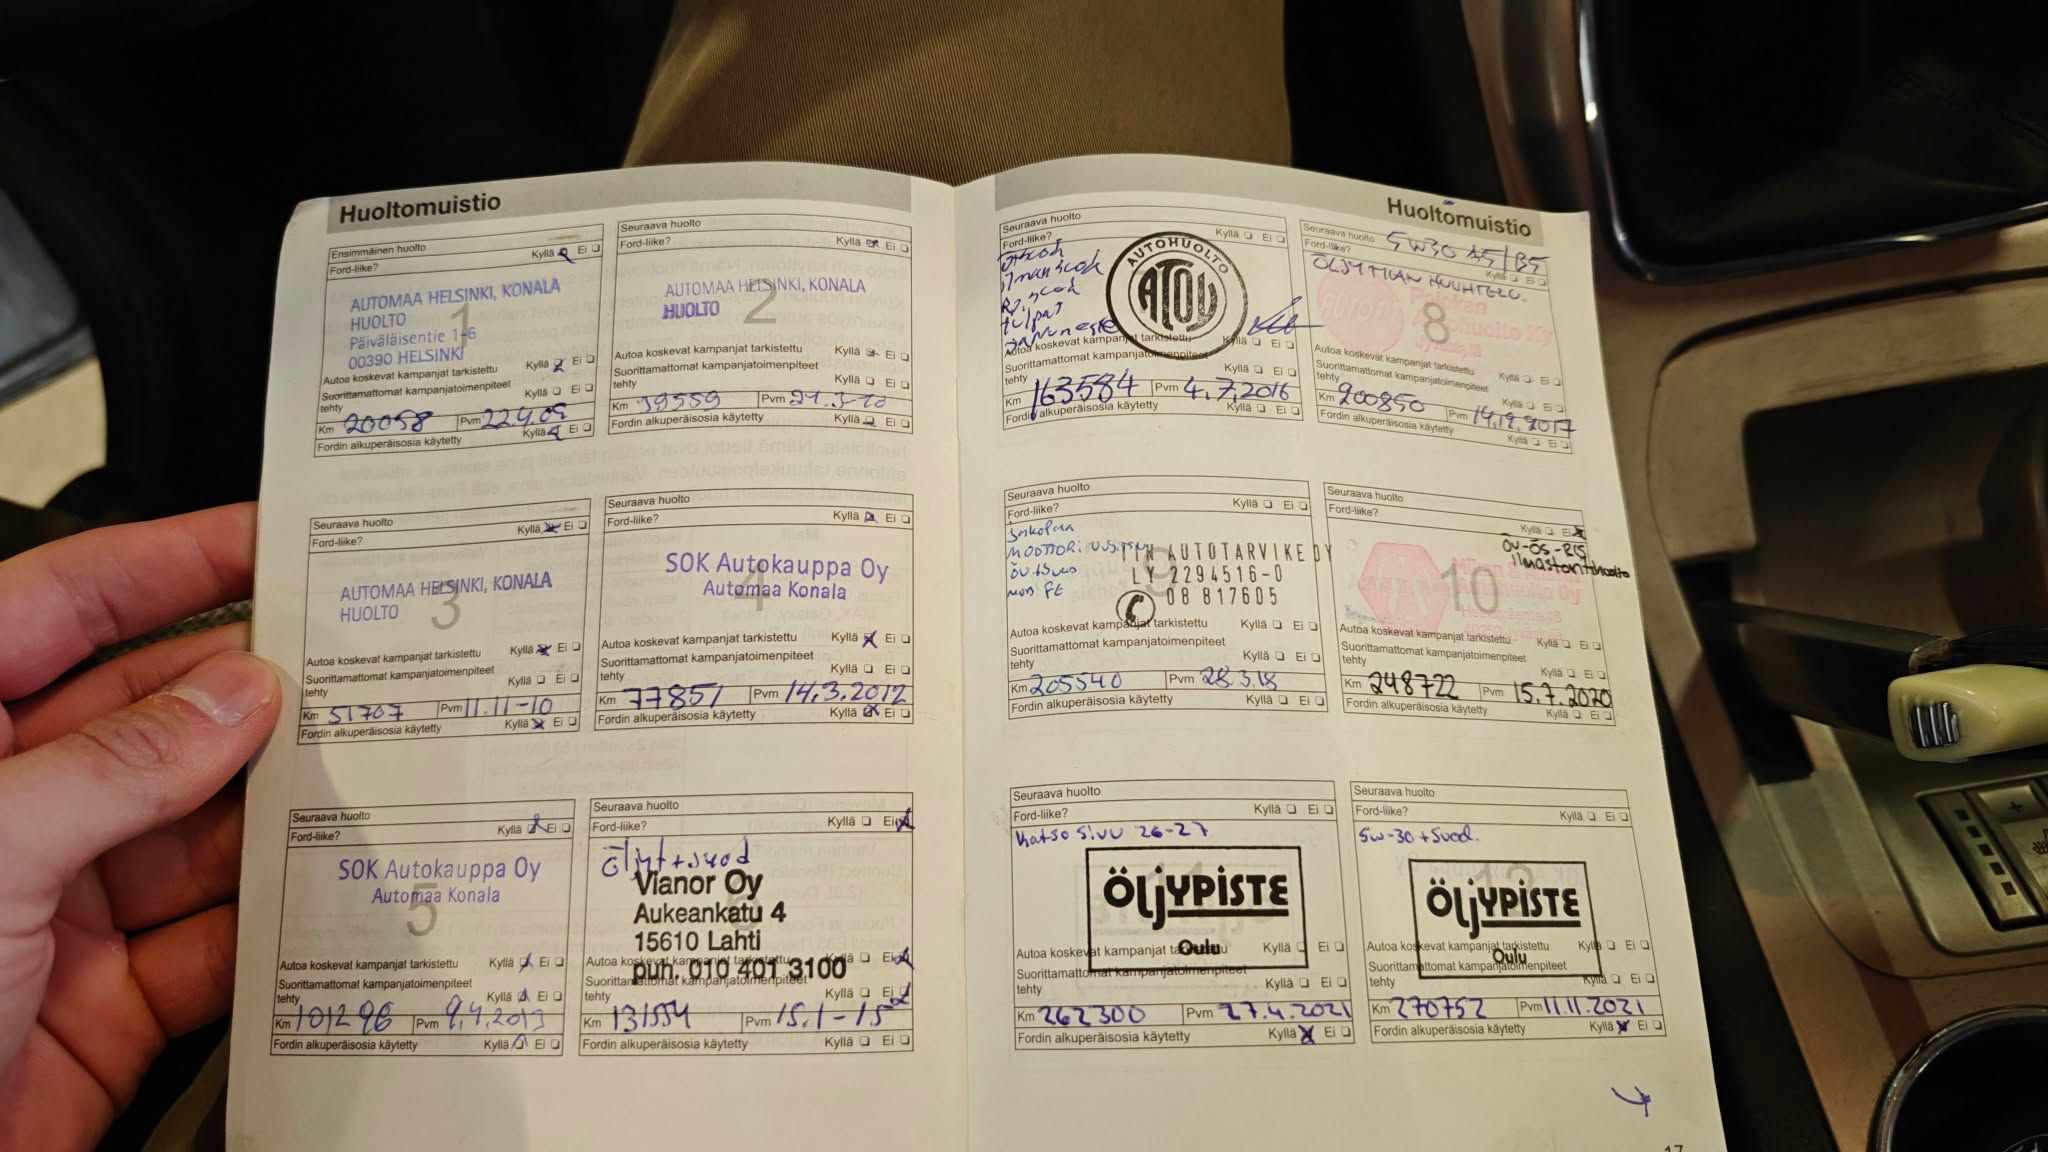 Huoltomuistio
Ensimmäinen huolto
Ford-liike? Kyllä Ei
1
AUTOMAA HELSINKI, KONALA
HUOLTO
Päiväläisentie 1-6
00390 HELSINKI
Autoa koskevat kampanjat tarkistettu Kyllä Ei
Suorittamattomat kampanjatoimenpiteet
tehty Kyllä Ei
Km 20058 Pvm 22.4.09
Fordin alkuperäisosia käytetty Kyllä Ei
Seuraava huolto
Ford-liike? Kyllä Ei
2
AUTOMAA HELSINKI, KONALA
HUOLTO
Autoa koskevat kampanjat tarkistettu Kyllä Ei
Suorittamattomat kampanjatoimenpiteet
tehty Kyllä Ei
Km 39559 Pvm
Fordin alkuperäisosia käytetty Kyllä Ei
Seuraava huolto
Ford-liike? Kyllä Ei
3
AUTOMAA HELSINKI, KONALA
HUOLTO
Autoa koskevat kampanjat tarkistettu Kyllä Ei
Suorittamattomat kampanjatoimenpiteet
tehty Kyllä Ei
Km 51707 Pvm 11.11-10
Fordin alkuperäisosia käytetty Kyllä Ei
Seuraava huolto
Ford-liike? Kyllä Ei
4
SOK Autokauppa Oy
Automaa Konala
Autoa koskevat kampanjat tarkistettu Kyllä Ei
Suorittamattomat kampanjatoimenpiteet
tehty Kyllä Ei
Km 77851 Pvm 14.3.2012
Fordin alkuperäisosia käytetty Kyllä Ei
Seuraava huolto
Ford-liike? Kyllä Ei
5
SOK Autokauppa Oy
Automaa Konala
Autoa koskevat kampanjat tarkistettu Kyllä Ei
Suorittamattomat kampanjatoimenpiteet
tehty Kyllä Ei
Km 101296 Pvm 9.4.2013
Fordin alkuperäisosia käytetty Kyllä Ei
Seuraava huolto
Ford-liike? Kyllä Ei
öljyt+suod
Vianor Oy
Aukeankatu 4
15610 Lahti
puh. 010 401 3100
Autoa koskevat kampanjat tarkistettu Kyllä Ei
Suorittamattomat kampanjatoimenpiteet
tehty Kyllä Ei
Km 131554 Pvm 15.1-15
Fordin alkuperäisosia käytetty Kyllä Ei
Huoltomuistio
Seuraava huolto
Ford-liike? Kyllä Ei
AUTOHUOLTO
ATOY
tulpat
Autoa koskevat kampanjat tarkistettu Kyllä Ei
Suorittamattomat kampanjatoimenpiteet
tehty Kyllä Ei
Km 163584 Pvm 4.7.2016
Fordin alkuperäisosia käytetty Kyllä Ei
Seuraava huolto 5W30 A5/B5
Ford-liike? Kyllä Ei
ÖLJYTILAN HUUHTELU.
8
Autoa koskevat kampanjat tarkistettu
Suorittamattomat kampanjatoimenpiteet Kyllä Ei
tehty Kyllä Ei
Km 200850 Pvm 14.12.2017
Fordin alkuperäisosia käytetty Kyllä Ei
Seuraava huolto
Ford-liike? Kyllä Ei
9
MOOTTORI
AUTOTARVIKE OY
LY 2294516-0
08 817605
Autoa koskevat kampanjat tarkistettu Kyllä Ei
Suorittamattomat kampanjatoimenpiteet
tehty Kyllä Ei
Km 205540 Pvm 28.3.18
Fordin alkuperäisosia käytetty Kyllä Ei
Seuraava huolto
Ford-liike? Kyllä Ei
Öv-ös-RS
Ilmastointihuolto
10
Autoa koskevat kampanjat tarkistettu Kyllä Ei
Suorittamattomat kampanjatoimenpiteet
tehty Kyllä Ei
Km 248722 Pvm 15.7.2020
Fordin alkuperäisosia käytetty Kyllä Ei
Seuraava huolto
Ford-liike? Kyllä Ei
Katso sivu 26-27
ÖljYPISTE
Oulu
Autoa koskevat kampanjat tarkistettu Kyllä Ei
Suorittamattomat kampanjatoimenpiteet
tehty Kyllä Ei
Km 262300 Pvm 27.4.2021
Fordin alkuperäisosia käytetty Kyllä Ei
Seuraava huolto
Ford-liike? Kyllä Ei
5w-30+Suod.
ÖljYPISTE
Oulu
Autoa koskevat kampanjat tarkistettu Kyllä Ei
Suorittamattomat kampanjatoimenpiteet
tehty Kyllä Ei
Km 270752 Pvm 11.11.2021
Fordin alkuperäisosia käytetty Kyllä Ei
17